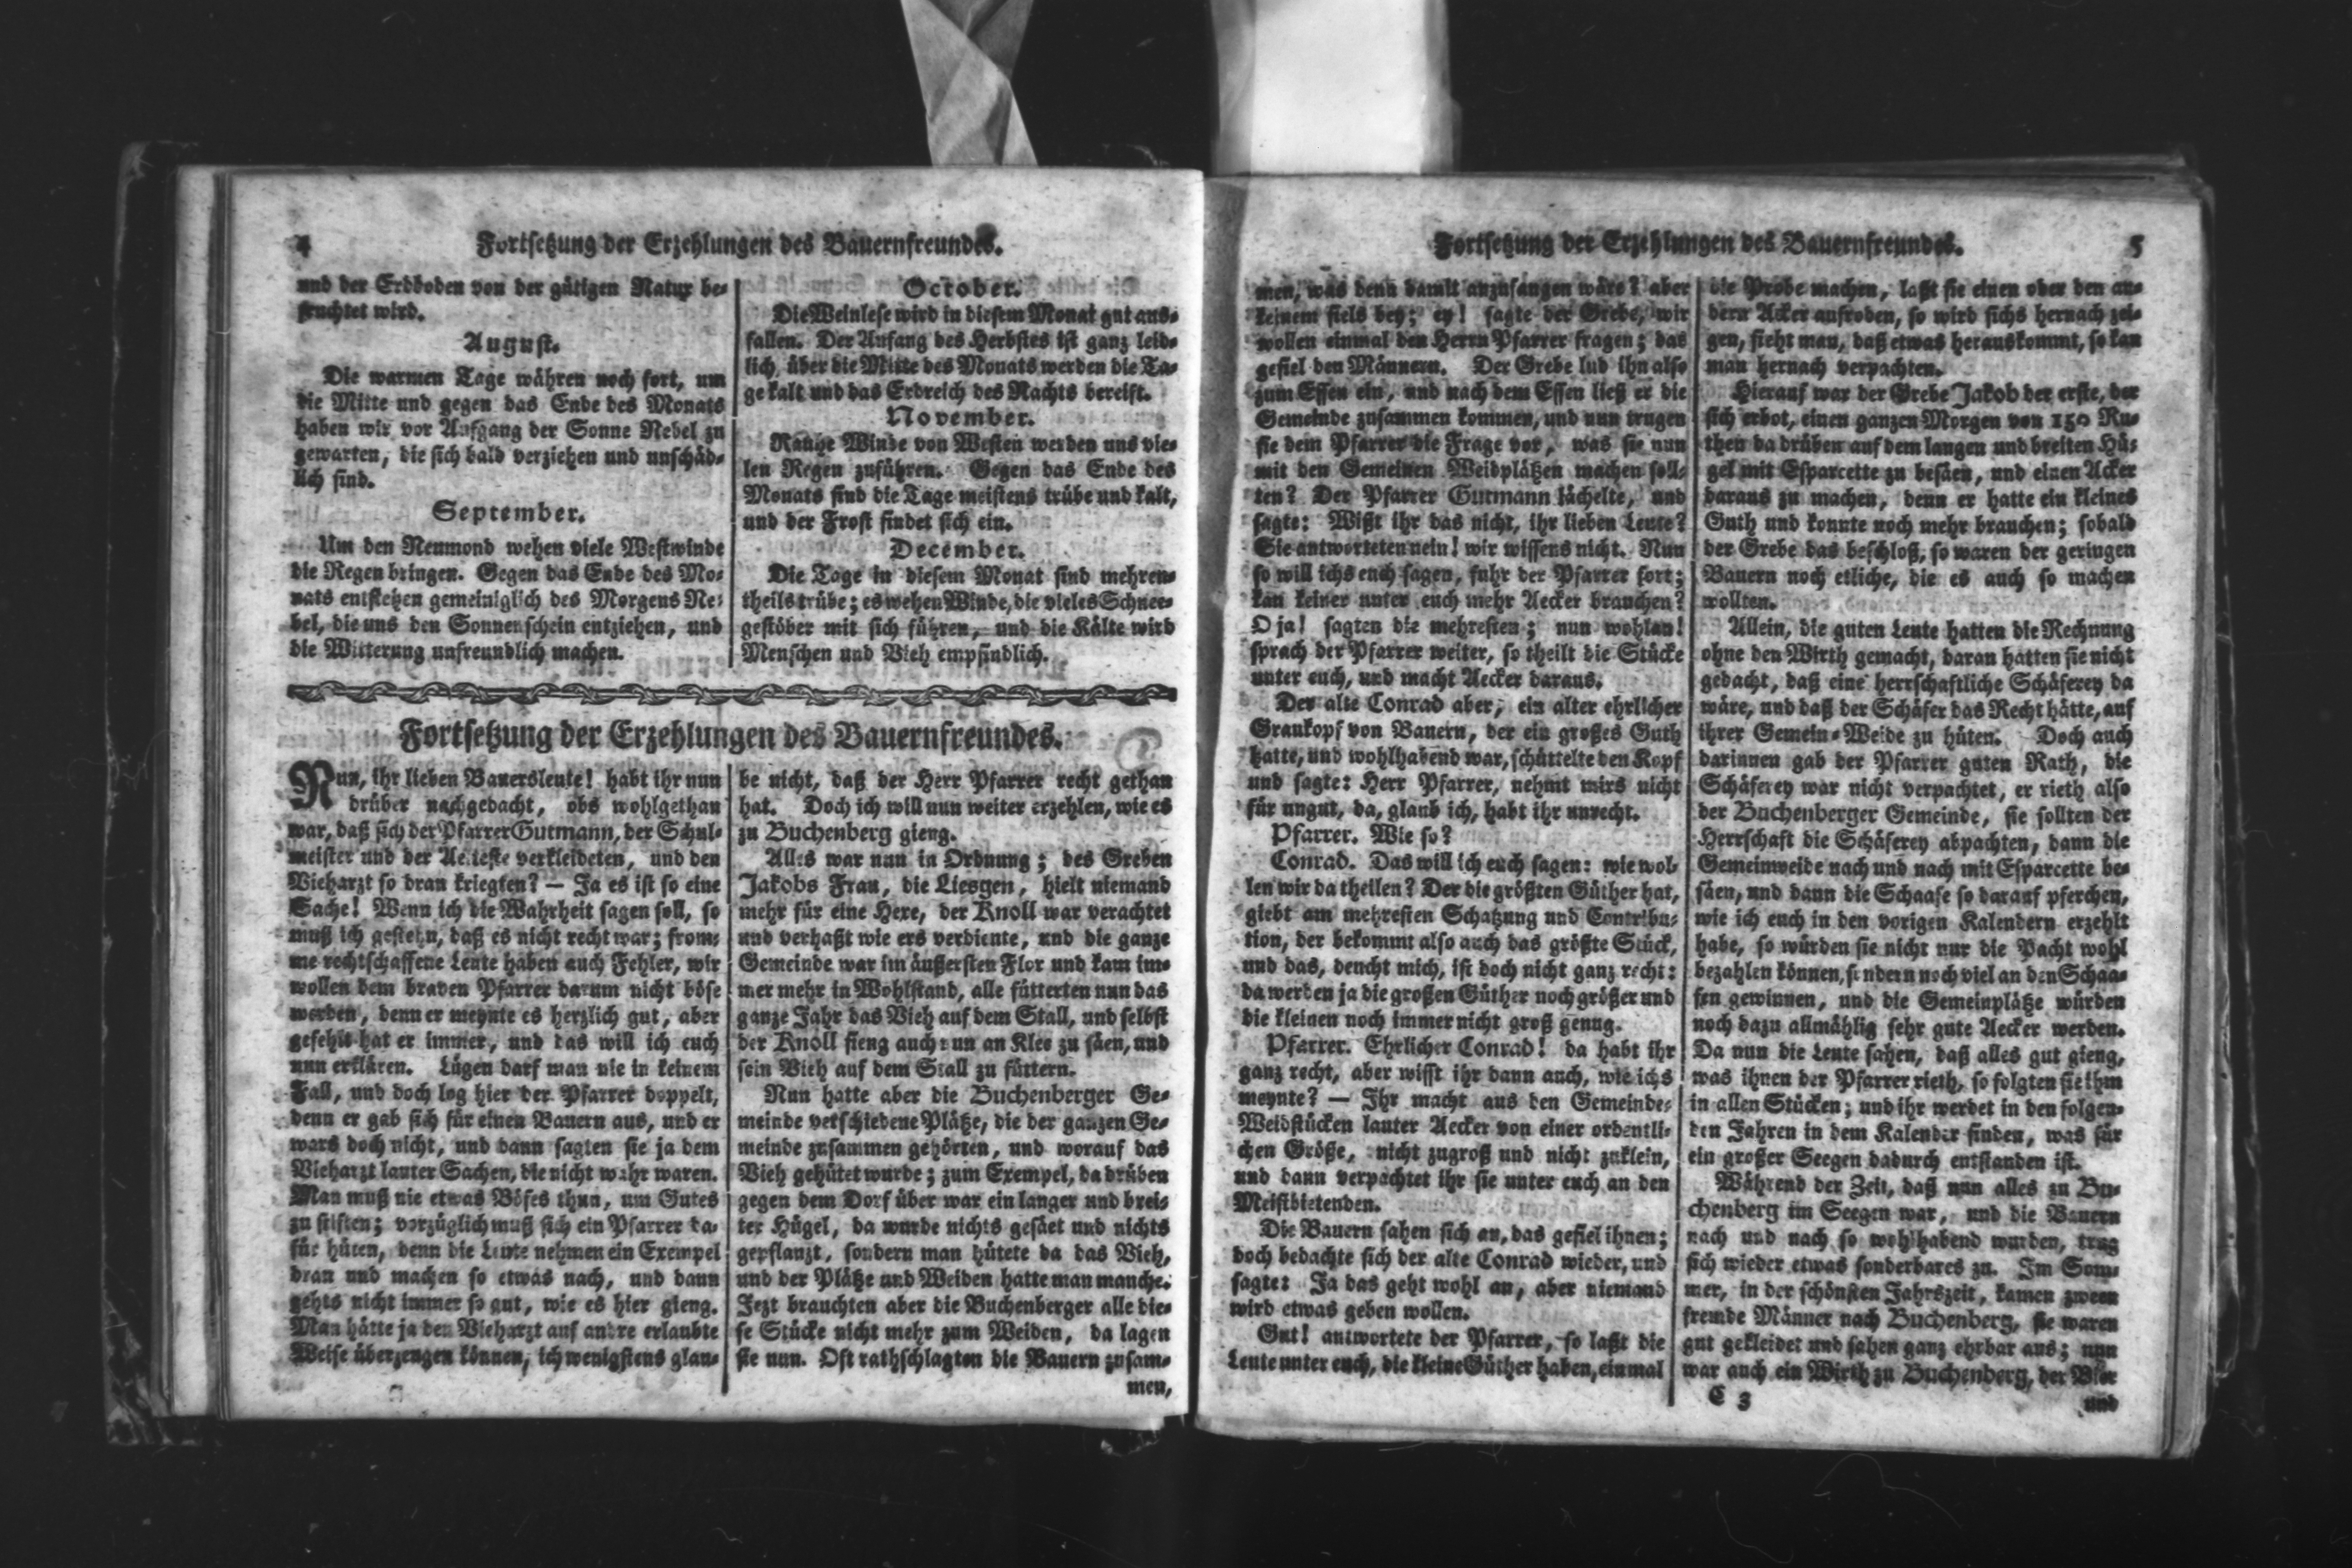 4
Fortsetzung der Erzehlungen des Bauernfreundes.
und der Erdboden von der gütigen Natur be-
fruchtet wird.
August.
Die warmen Tage währen noch fort, um
die Mitte und gegen das Ende des Monats
haben wir vor Aufgang der Sonne Nebel zu
gewarten, die sich bald verziehen und unschäd-
lich sind.
September.
Um den Neumond wehen viele Westwinde
die Regen bringen. Gegen das Ende des Mo-
nats entstehen gemeiniglich des Morgens Ne-
bel, die uns den Sonnenschein entziehen, und
die Witterung unfreundlich machen.
October.
Die Weinlese wird in diesem Monat gut aus-
fallen. Der Anfang des Herbstes ist ganz leid-
lich, über die Mitte des Monats werden die Ta-
ge kalt und das Erdreich des Nachts bereift.
November.
Rauhe Winde von Westen werden uns vie-
len Regen zuführen. Gegen das Ende des
Monats sind die Tage meistens trübe und kalt,
und der Frost findet sich ein.
December.
Die Tage in diesem Monat sind mehren-
theils trübe; es wehen Winde, die vieles Schnee-
gestöber mit sich führen, und die Kälte wird
Menschen und Vieh empfindlich.
Fortsetzung der Erzehlungen des Bauernfreundes.
Nun, ihr lieben Bauersleute! habt ihr nun
drüber nachgedacht, obs wohlgethan
war, daß sich der Pfarrer Gutmann, der Schul-
meister und der Aelteste verkleideten, und den
Vieharzt so dran kriegten? — Ja es ist so eine
Sache! Wenn ich die Wahrheit sagen soll, so
muß ich gestehn, daß es nicht recht war; from-
me rechtschaffene Leute haben auch Fehler, wir
wollen dem braven Pfarrer darum nicht böse
werden, denn er meynte es herzlich gut, aber
gefehlt hat er immer, und das will ich euch
nun erklären. Lügen darf man nie in keinem
Fall, und doch log hier der Pfarrer doppelt,
denn er gab sich für einen Bauern aus, und er
wars doch nicht, und dann sagten sie ja dem
Vieharzt lauter Sachen, die nicht wahr waren.
Man muß nie etwas Böses thun, um Gutes
zu stiften; vorzüglich muß sich ein Pfarrer da-
für hüten, denn die Leute nehmen ein Exempel
dran und machen so etwas nach, und dann
gehts nicht immer so gut, wie es hier gieng.
Man hätte ja den Vieharzt auf andre erlaubte
Weise überzeugen können, ich wenigstens glau-
be nicht, daß der Herr Pfarrer recht gethan
hat. Doch ich will nun weiter erzehlen, wie es
zu Buchenberg gieng.
Alles war nun in Ordnung; des Greben
Jakobs Frau, die Liesgen, hielt niemand
mehr für eine Hexe, der Knoll war verachtet
und verhaßt wie ers verdiente, und die ganze
Gemeinde war im äußersten Flor und kam im-
mer mehr in Wohlstand, alle fütterten nun das
ganze Jahr das Vieh auf dem Stall, und selbst
der Knoll fieng auch nun an Klee zu säen, und
sein Vieh auf dem Stall zu füttern.
Nun hatte aber die Buchenberger Ge-
meinde verschiedene Plätze, die der ganzen Ge-
meinde zusammen gehörten, und worauf das
Vieh gehütet wurde; zum Exempel, da drüben
gegen dem Dorf über war ein langer und brei-
ter Hügel, da wurde nichts gesäet und nichts
gepflanzt, sondern man hütete da das Vieh,
und der Plätze und Weiden hatte man manche.
Jezt brauchten aber die Buchenberger alle die-
se Stücke nicht mehr zum Weiden, da lagen
sie nun. Oft rathschlagten die Bauern zusam-
men,
Fortsetzung der Erzehlungen des Bauernfreundes.
5
men, was denn damit anzufangen wäre? aber
keinem fiels bey; ey! sagte der Grebe, wir
wollen einmal den Herrn Pfarrer fragen; das
gefiel den Männern. Der Grebe lud ihn also
zum Essen ein, und nach dem Essen ließ er die
Gemeinde zusammen kommen, und nun trugen
sie dem Pfarrer die Frage vor, was sie nun
mit den Gemeinen Weidplätzen machen soll-
ten? Der Pfarrer Gutmann lächelte, und
sagte: Wißt ihr das nicht, ihr lieben Leute?
Sie antworteten nein! wir wissens nicht. Nun
so will ichs euch sagen, fuhr der Pfarrer fort;
kan keiner unter euch mehr Aecker brauchen?
O ja! sagten die mehresten; nun wohlan!
sprach der Pfarrer weiter, so theilt die Stücke
unter euch, und macht Aecker daraus.
Der alte Conrad aber, ein alter ehrlicher
Graukopf von Bauern, der ein großes Guth
hatte, und wohlhabend war, schüttelte den Kopf
und sagte: Herr Pfarrer, nehmt mirs nicht
für ungut, da, glaub ich, habt ihr unrecht.
Pfarrer. Wie so?
Conrad. Das will ich euch sagen: wie wol-
len wir da theilen? Der die größten Güther hat,
giebt am mehresten Schatzung und Contribu-
tion, der bekommt also auch das größte Stück,
und das, deucht mich, ist doch nicht ganz recht:
da werden ja die großen Güther noch größer und
die kleinen noch immer nicht groß genug.
Pfarrer. Ehrlicher Conrad! da habt ihr
ganz recht, aber wisst ihr dann auch, wie ichs
meynte? — Ihr macht aus den Gemeinde-
Weidstücken lauter Aecker von einer ordentli-
chen Größe, nicht zugroß und nicht zuklein,
und dann verpachtet ihr sie unter euch an den
Meistbietenden.
Die Bauern sahen sich an, das gefiel ihnen;
doch bedachte sich der alte Conrad wieder, und
sagte: Ja das geht wohl an, aber niemand
wird etwas geben wollen.
Gut! antwortete der Pfarrer, so laßt die
Leute unter euch, die kleine Güther haben, einmal
die Probe machen, laßt sie einen oder den an-
dern Acker aufroden, so wird sichs hernach zei-
gen, sieht man, daß etwas herauskommt, so kan
man hernach verpachten.
Hierauf war der Grebe Jakob der erste, der
sich erbot, einen ganzen Morgen von 150 Ru-
then da drüben auf dem langen und breiten Hü-
gel mit Esparcette zu besäen, und einen Acker
daraus zu machen, denn er hatte ein kleines
Guth und konnte noch mehr brauchen; sobald
der Grebe das beschloß, so waren der geringen
Bauern noch etliche, die es auch so machen
wollten.
Allein, die guten Leute hatten die Rechnung
ohne den Wirth gemacht, daran hatten sie nicht
gedacht, daß eine herrschaftliche Schäferey da
wäre, und daß der Schäfer das Recht hätte, auf
ihrer Gemein-Weide zu hüten. Doch auch
darinnen gab der Pfarrer guten Rath, die
Schäferey war nicht verpachtet, er rieth also
der Buchenberger Gemeinde, sie sollten der
Herrschaft die Schäferey abpachten, dann die
Gemeinweide nach und nach mit Esparcette be-
säen, und dann die Schaafe so darauf pferchen,
wie ich euch in den vorigen Kalendern erzehlt
habe, so würden sie nicht nur die Pacht wohl
bezahlen können, sondern noch viel an den Schaa-
fen gewinnen, und die Gemeinplätze würden
noch dazu allmählig sehr gute Aecker werden.
Da nun die Leute sahen, daß alles gut gieng,
was ihnen der Pfarrer rieth, so folgten sie ihm
in allen Stücken; und ihr werdet in den folgen-
den Jahren in dem Kalender finden, was für
ein großer Seegen dadurch entstanden ist.
Während der Zeit, daß nun alles zu Bu-
chenberg im Seegen war, und die Bauern
nach und nach so wohlhabend wurden, trug
sich wieder etwas sonderbares zu. Im Som-
mer, in der schönsten Jahrszeit, kamen zween
fremde Männer nach Buchenberg, sie waren
gut gekleidet und sahen ganz ehrbar aus; nun
war auch ein Wirth zu Buchenberg, der Bier
C 3
und